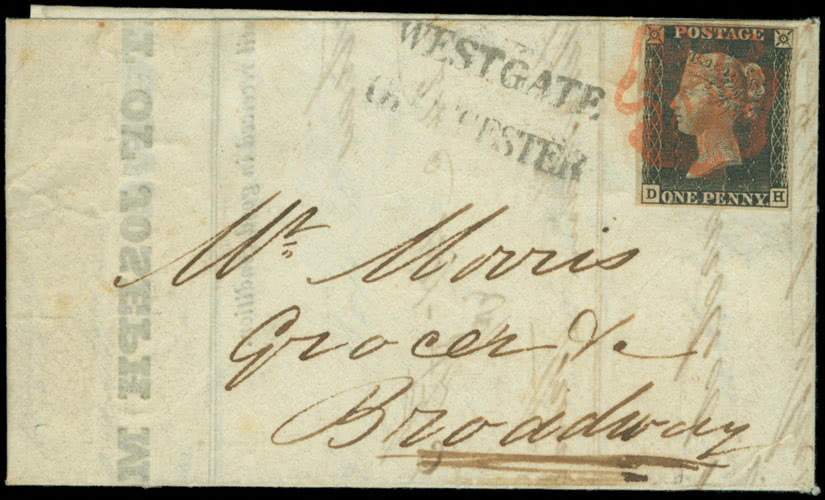 WESTGATE
GLOUCESTER
POSTAGE
D H
ONE PENNY
Mr. Morris
Grocer &c
Broadway